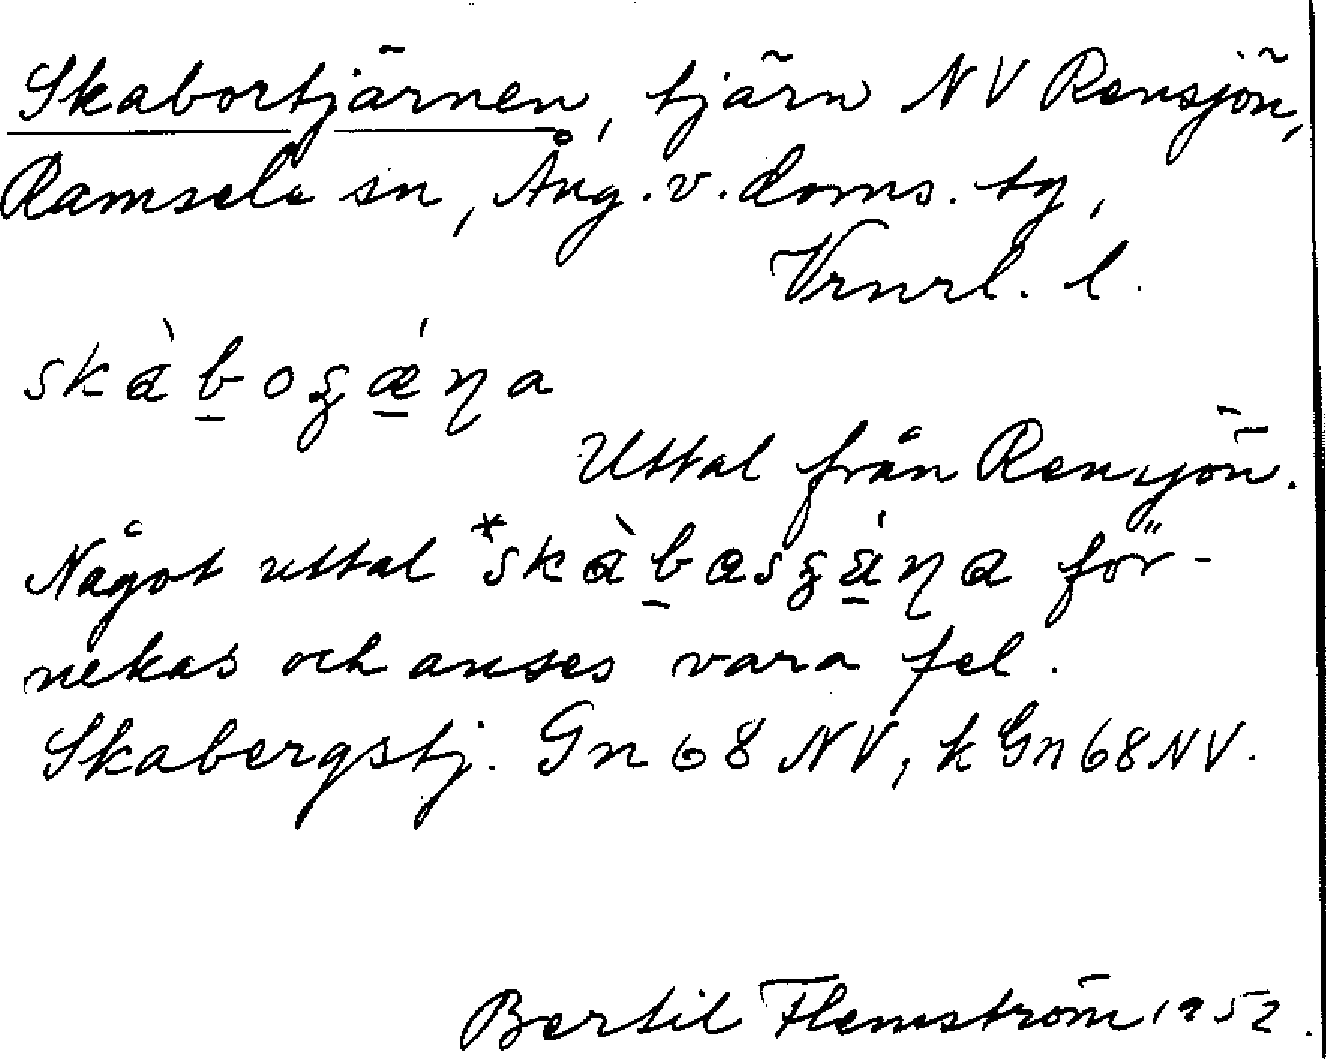 Skabortjärnen, tjärn NV Rensjön,
Ramsele sn, Ång. v. doms. tg,
Vrnrl. l.
skàbogǽŋa
Uttal från Rensjön.
Något uttal *skàbasgáŋa för-
nekas och anses vara fel.
Skabergstj. Gn 68 NV, k Gn 68 NV.
Bertil Flemström 1952.